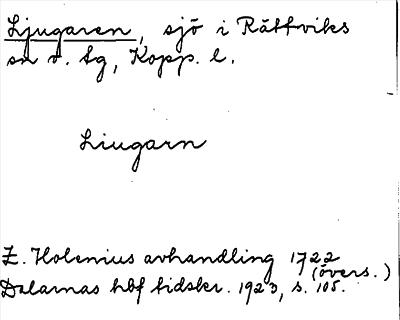 Ljugaren, sjö i Rättviks
sn o. tg, Kopp. l.
Liugarn
Z. Holenius avhandling 1722
(övers.)
Dalarnas hbf tidskr. 1923, s. 105.